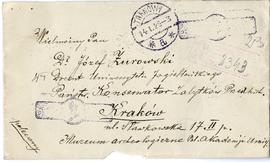 KRAKÓW 1
Wielmożny Pan
Dr. Józef Żurowski
Docent Uniwersytetu Jagiellońskiego
Państw. Konserwator Zabytków Przedhist.
Kraków
ul. Sławkowska 17. II p.
Muzeum archeologiczne Pol. Akademji Umiej.
polecony